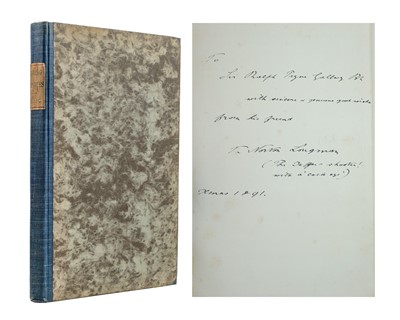 To
Sir Ralph Payne Gallwey Bt
with sincere & generous good wishes
from his friend
T. Norton Longman
(The Duffer - shooter!
with a cock eye!)
Xmas 1891.